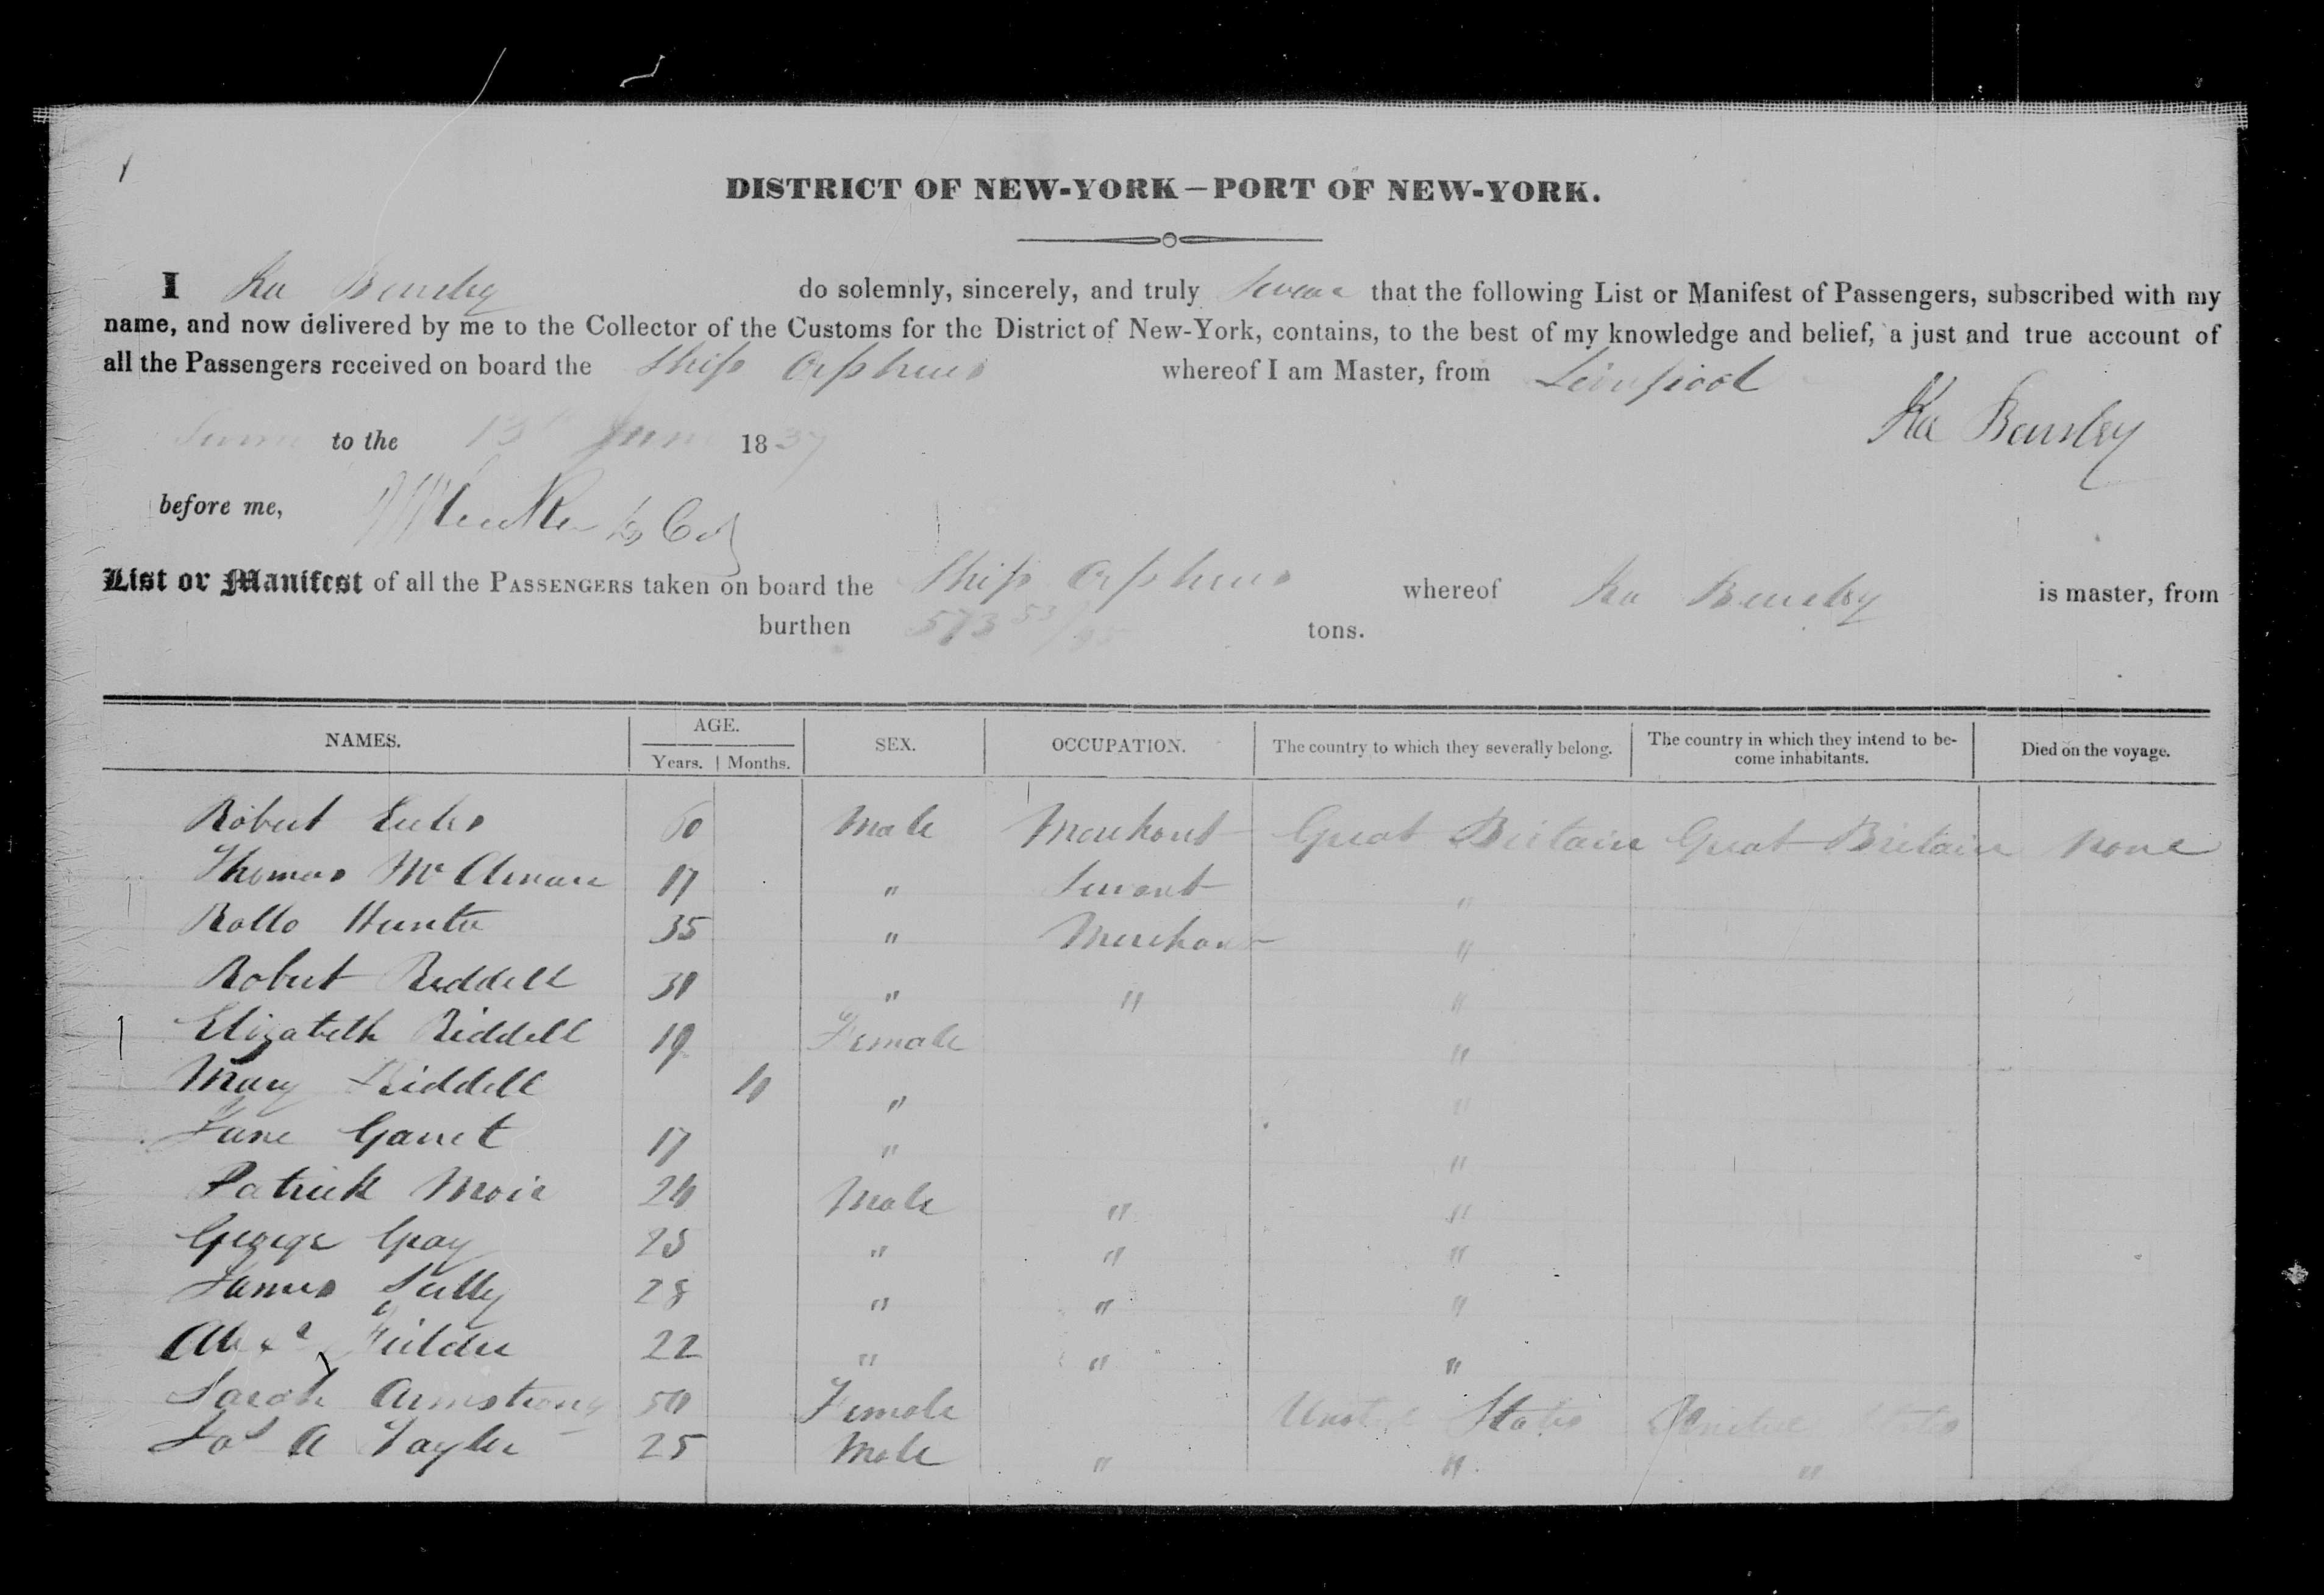 DISTRICT OF NEW-YORK—PORT OF NEW-YORK.
I Ira Bursley do solemnly, sincerely, and truly Swear that the following List or Manifest of Passengers, subscribed with my
name, and now delivered by me to the Collector of the Customs for the District of New-York, contains, to the best of my knowledge and belief, a just and true account of
all the Passengers received on board the Ship Orpheus whereof I am Master, from Liverpool
Ira Bursley
to the 13th June 1837
before me,
List or Manifest of all the PASSENGERS taken on board the Ship Orpheus whereof Ira Bursley is master, from
burthen 573 53/95 tons.
NAMES. AGE. SEX. OCCUPATION. The country to which they severally belong. The country in which they intend to be-come inhabitants. Died on the voyage.
Years. Months.
Robert 60 Male Merchant Great Britain Great Britain None
Thomas 17 " Servant "
Rollo Hunter 35 " Merchant "
Robert Riddell 30 " " "
Elizabeth Riddell 19 Female "
Mary Riddell " "
Jane Garret 17 " "
Patrick Moir 24 Male " "
George Gray 25 " " "
James 28 " " "
Alexr 22 " " "
Sarah Armstrong 50 Female United States United States
Jas A Taylor 25 Male " " "